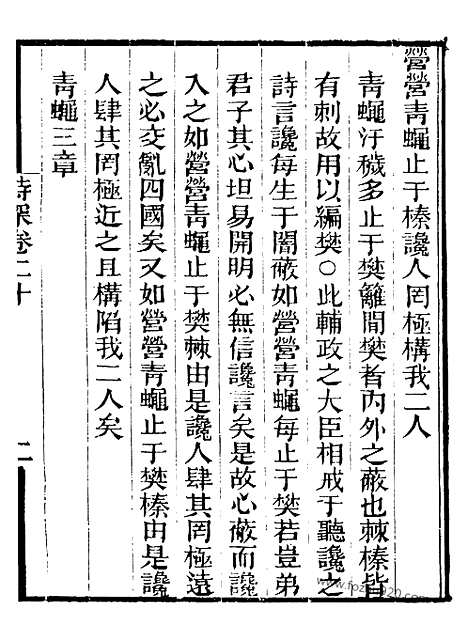 營營青蠅止于榛讒人罔極構我二人
青蠅汙穢多止于樊籬間樊者內外之蔽也棘榛皆
有刺故用以編樊○此輔政之大臣相戒于聽讒之
詩言讒每生于闇蔽如營營青蠅每止于樊若豈弟
君子其心坦易開明必無信讒言矣是故心蔽而讒
入之如營營青蠅止于樊棘由是讒人肆其罔極遠
之必交亂四國矣又如營營青蠅止于樊榛由是讒
人肆其罔極近之且構陷我二人矣
青蠅三章
詩深卷二十
二